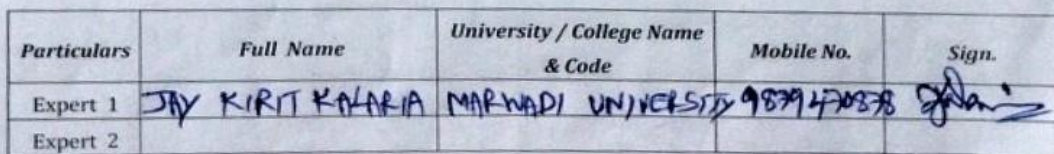 Particulars Full Name University / College Name & Code Mobile No. Sign.
Expert 1 JAY KIRIT KALARIA MARWADI UNIVERSITY 9879470878
Expert 2